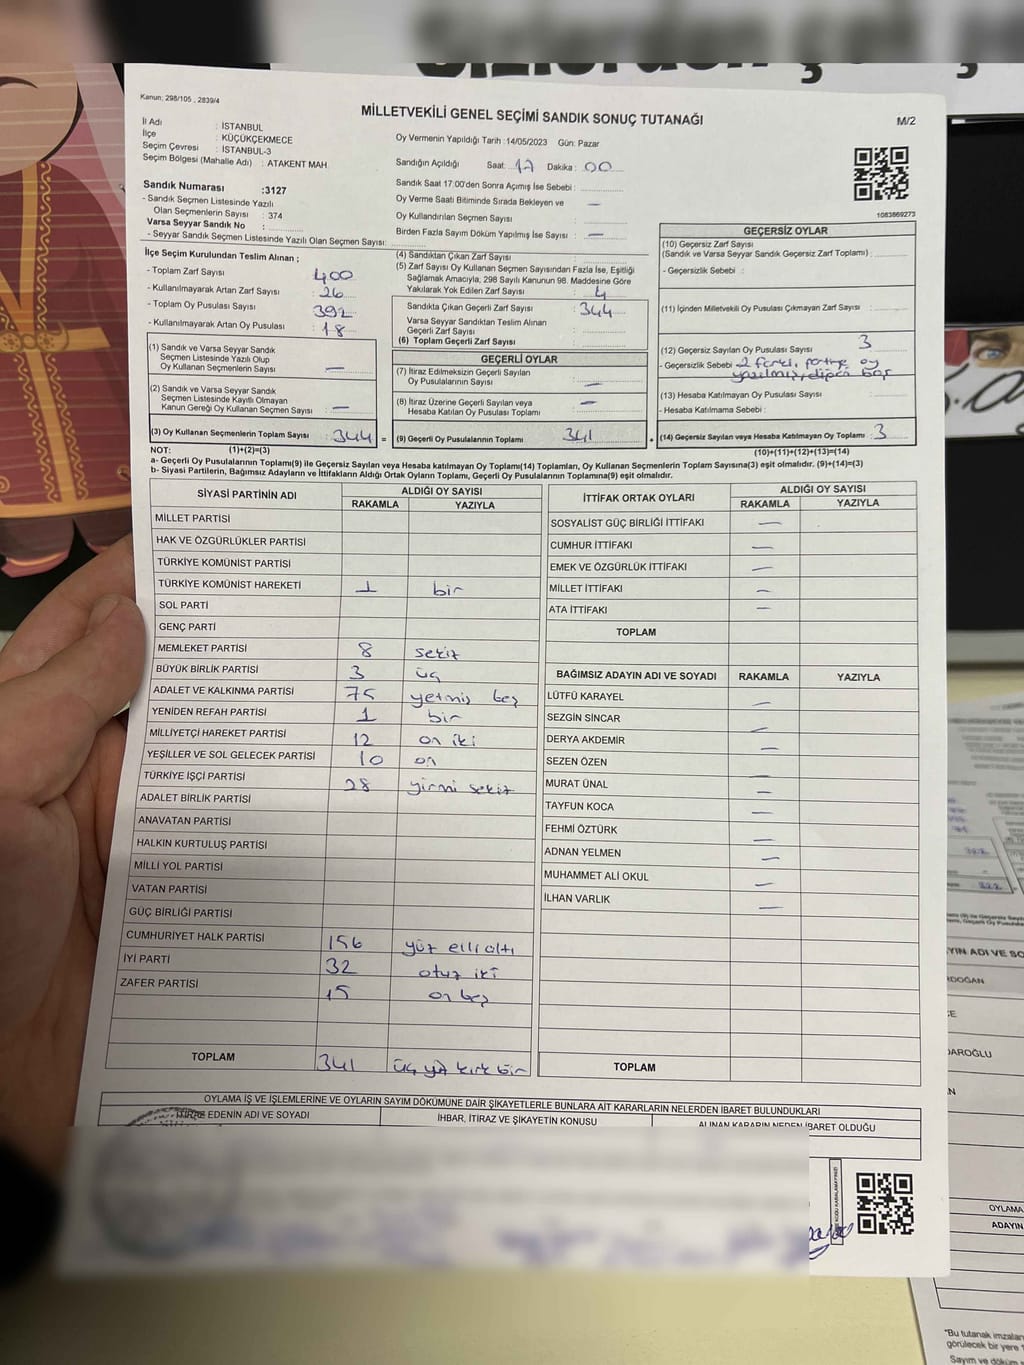 Sizlerden çok
Kanun: 298/105 , 2839/4
MİLLETVEKİLİ GENEL SEÇİMİ SANDIK SONUÇ TUTANAĞI
M/2
İl Adı : İSTANBUL
İlçe : KÜÇÜKÇEKMECE
Seçim Çevresi : İSTANBUL-3
Seçim Bölgesi (Mahalle Adı) : ATAKENT MAH.
Oy Vermenin Yapıldığı Tarih :14/05/2023 Gün: Pazar
Sandığın Açıldığı Saat: 17 Dakika : 00
Sandık Saat 17:00'den Sonra Açımış İse Sebebi :
Oy Verme Saati Bitiminde Sırada Bekleyen ve
Oy Kullandırılan Seçmen Sayısı : —
Birden Fazla Sayım Döküm Yapılmış İse Sayısı : —
1083869273
Sandık Numarası :3127
- Sandık Seçmen Listesinde Yazılı
Olan Seçmenlerin Sayısı : 374
Varsa Seyyar Sandık No :
- Seyyar Sandık Seçmen Listesinde Yazılı Olan Seçmen Sayısı:
İlçe Seçim Kurulundan Teslim Alınan ;
- Toplam Zarf Sayısı : 400
- Kullanılmayarak Artan Zarf Sayısı : 26
- Toplam Oy Pusulası Sayısı : 392
- Kullanılmayarak Artan Oy Pusulası : 18
(1) Sandık ve Varsa Seyyar Sandık
Seçmen Listesinde Yazılı Olup
Oy Kullanan Seçmenlerin Sayısı : —
(2) Sandık ve Varsa Seyyar Sandık
Seçmen Listesinde Kayıtlı Olmayan
Kanun Gereği Oy Kullanan Seçmen Sayısı : —
(3) Oy Kullanan Seçmenlerin Toplam Sayısı : 344 =
(4) Sandıktan Çıkan Zarf Sayısı :
(5) Zarf Sayısı Oy Kullanan Seçmen Sayısından Fazla İse, Eşitliği
Sağlamak Amacıyla, 298 Sayılı Kanunun 98. Maddesine Göre
Yakılarak Yok Edilen Zarf Sayısı :
Sandıkta Çıkan Geçerli Zarf Sayısı : 344
Varsa Seyyar Sandıktan Teslim Alınan
Geçerli Zarf Sayısı :
(6) Toplam Geçerli Zarf Sayısı :
GEÇERLİ OYLAR
(7) İtiraz Edilmeksizin Geçerli Sayılan
Oy Pusulalarının Sayısı : —
(8) İtiraz Üzerine Geçerli Sayılan veya
Hesaba Katılan Oy Pusulası Toplamı : —
(9) Geçerli Oy Pusulalarının Toplamı : 341 +
GEÇERSİZ OYLAR
(10) Geçersiz Zarf Sayısı
(Sandık ve Varsa Seyyar Sandık Geçersiz Zarf Toplamı) :
- Geçersizlik Sebebi :
(11) İçinden Milletvekili Oy Pusulası Çıkmayan Zarf Sayısı :
(12) Geçersiz Sayılan Oy Pusulası Sayısı : 3
- Geçersizlik Sebebi : 2 farklı partiye oy
yazılmış, diğeri boş
(13) Hesaba Katılmayan Oy Pusulası Sayısı :
- Hesaba Katılmama Sebebi :
(14) Geçersiz Sayılan veya Hesaba Katılmayan Oy Toplamı : 3
NOT: (1)+(2)=(3) (10)+(11)+(12)+(13)=(14)
a- Geçerli Oy Pusulalarının Toplamı(9) ile Geçersiz Sayılan veya Hesaba katılmayan Oy Toplamı(14) Toplamları, Oy Kullanan Seçmenlerin Toplam Sayısına(3) eşit olmalıdır. (9)+(14)=(3)
b- Siyasi Partilerin, Bağımsız Adayların ve İttifakların Aldığı Ortak Oyların Toplamı, Geçerli Oy Pusulalarının Toplamına(9) eşit olmalıdır.
SİYASİ PARTİNİN ADI ALDIĞI OY SAYISI
RAKAMLA YAZIYLA
MİLLET PARTİSİ
HAK VE ÖZGÜRLÜKLER PARTİSİ
TÜRKİYE KOMÜNİST PARTİSİ
TÜRKİYE KOMÜNİST HAREKETİ 1 bir
SOL PARTİ
GENÇ PARTİ
MEMLEKET PARTİSİ 8 sekiz
BÜYÜK BİRLİK PARTİSİ 3 üç
ADALET VE KALKINMA PARTİSİ 75 yetmiş beş
YENİDEN REFAH PARTİSİ 1 bir
MİLLİYETÇİ HAREKET PARTİSİ 12 on iki
YEŞİLLER VE SOL GELECEK PARTİSİ 10 on
TÜRKİYE İŞÇİ PARTİSİ 28 yirmi sekiz
ADALET BİRLİK PARTİSİ
ANAVATAN PARTİSİ
HALKIN KURTULUŞ PARTİSİ
MİLLİ YOL PARTİSİ
VATAN PARTİSİ
GÜÇ BİRLİĞİ PARTİSİ
CUMHURİYET HALK PARTİSİ 156 yüz elli altı
İYİ PARTİ 32 otuz iki
ZAFER PARTİSİ 15 on beş
TOPLAM 341 üç yüz kırk bir
İTTİFAK ORTAK OYLARI ALDIĞI OY SAYISI
RAKAMLA YAZIYLA
SOSYALİST GÜÇ BİRLİĞİ İTTİFAKI —
CUMHUR İTTİFAKI —
EMEK VE ÖZGÜRLÜK İTTİFAKI —
MİLLET İTTİFAKI —
ATA İTTİFAKI —
TOPLAM
BAĞIMSIZ ADAYIN ADI VE SOYADI RAKAMLA YAZIYLA
LÜTFÜ KARAYEL —
SEZGİN SİNCAR —
DERYA AKDEMİR —
SEZEN ÖZEN —
MURAT ÜNAL —
TAYFUN KOCA —
FEHMİ ÖZTÜRK —
ADNAN YELMEN —
MUHAMMET ALİ OKUL —
İLHAN VARLIK —
TOPLAM
OYLAMA İŞ VE İŞLEMLERİNE VE OYLARIN SAYIM DÖKÜMÜNE DAİR ŞİKAYETLERLE BUNLARA AİT KARARLARIN NELERDEN İBARET BULUNDUKLARI
İTİRAZ EDENİN ADI VE SOYADI
İHBAR, İTİRAZ VE ŞİKAYETİN KONUSU
ALINAN KARARIN NEDEN İBARET OLDUĞU
YIN ADI VE SO
RDOĞAN
CE
DAROĞLU
AN
OYLAMA
ADAYIN
"Bu tutanak imzalan
görülecek bir yere
Sayım ve döküm